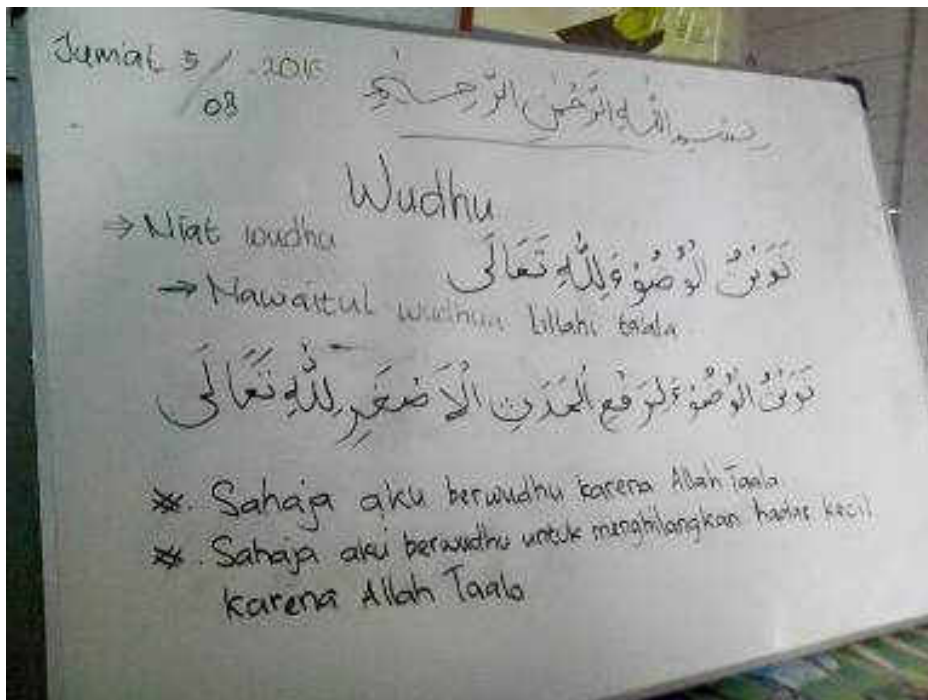 Jumat 5/08 2016
بسم الله الرَّحْمٰنِ الرَّحِيم
Wudhu
⇒ Niat wudhu
نَوَيْتُ الْوُضُوْءَ لِلّٰهِ تَعَالَى
→ Nawaitul wudhua lillahi ta'ala
نَوَيْتُ الْوُضُوْءَ لِرَفْعِ الْحَدَثِ الْاَصْغَرِ لِلّٰهِ تَعَالَى
※. Sahaja aku berwudhu karena Allah Taala
※. Sahaja aku berwudhu untuk menghilangkan hadas kecil
karena Allah Taala